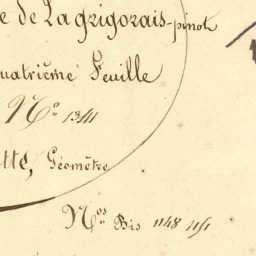 e de Lagrigorais-pinot
uatrième Feuille
N° 1341
tte, Géomètre
Nos Bis 1148